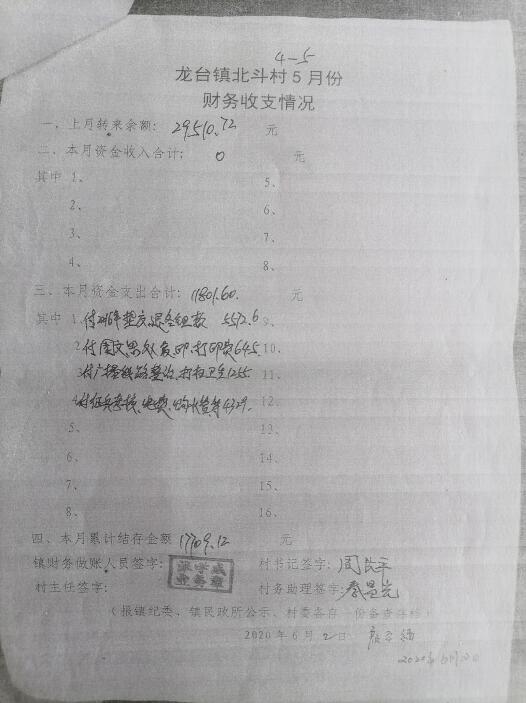 4-5
龙台镇北斗村5月份
财务收支情况
一、上月转来余额: 29510.72 元
二、本月资金收入合计: 0 元
其中 1、 5、
2、 6、
3、 7、
4、 8、
三、本月资金支出合计: 11801.60. 元
其中 1、付 5572.6 9、
2、付图文 复印、打印费645. 10、
3、付广播线路整治、打扫卫生1255. 11、
4、付征兵 电费 等4329. 12、
5、 13、
6、 14、
7、 15、
8、 16、
四、本月累计结存金额 17709.12 元
镇财务做账人员签字: 村书记签字: 周
村主任签字: 村务助理签字: 秦
(报镇纪委、镇民政所公示、村委各自一份备查存档)
2020年6月2日
2020年6月